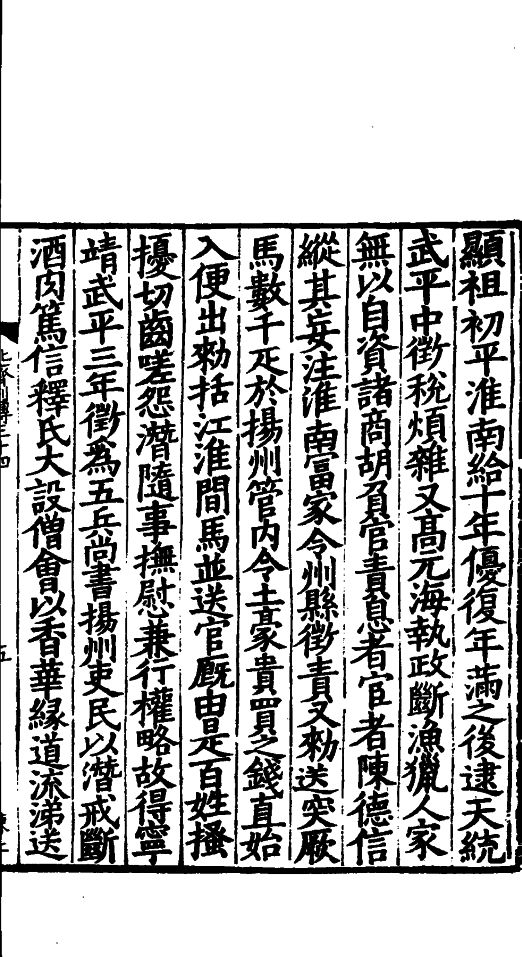 顯祖初平淮南給十年優復年滿之後逮天統
武平中徵稅煩雜又髙元海執政斷漁獵人家
無以自資諸商胡負官責息者宦者陳德信
縱其妄注淮南富家令州縣徵責又勑送突厥
馬數千疋於揚州管內令土豪貴買之錢直始
入便出勑括江淮間馬並送官廐由是百姓搔
擾切齒嗟怨潛隨事撫慰兼行權略故得寧
靖武平三年徵爲五兵尚書揚州吏民以潛戒斷
酒肉篤信釋氏大設僧會以香華緣道流涕送
五